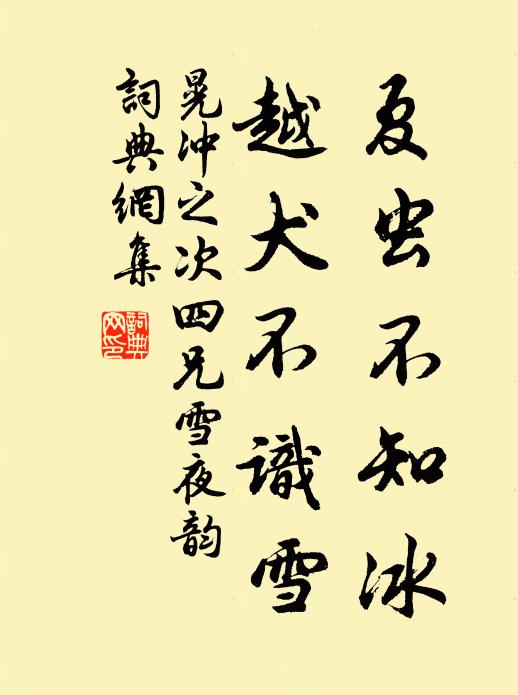 夏虫不知冰
越犬不識雪
晁沖之次四兄雪夜韵
詞典網集
詞典
网印